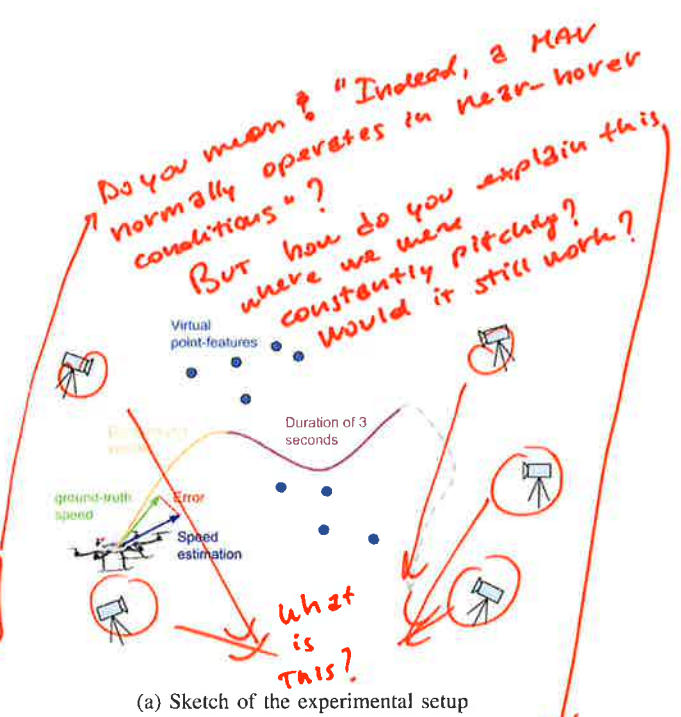 Do you mean? "Indeed, a MAV
normally operates in near-hover
conditions"?
But how do you explain this
where we were
constantly pitching?
Would it still work?
Virtual
point-features
Duration of 3
seconds
ground-truth
speed
Error
Speed
estimation
What
is
This?
(a) Sketch of the experimental setup